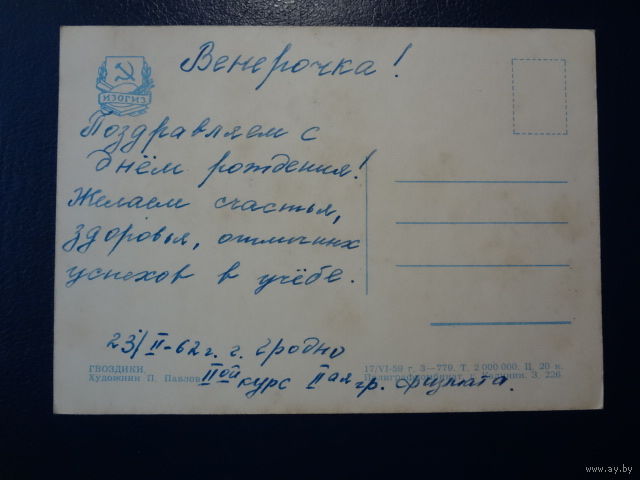 Венерочка!
ИЗОГИЗ
Поздравляем с
днём рождения!
Желаем счастья,
здоровья, отличных
успехов в учёбе.
23/II-62 г. г. Гродно
IIой курс IIая гр. физмата.
ГВОЗДИКИ.
Художник П. Павлов
17/VI-59 г. З—779. Т. 2 000 000. Ц. 20 к.
Полиграфкомбинат, г. Калинин. З. 226.
www.ay.by